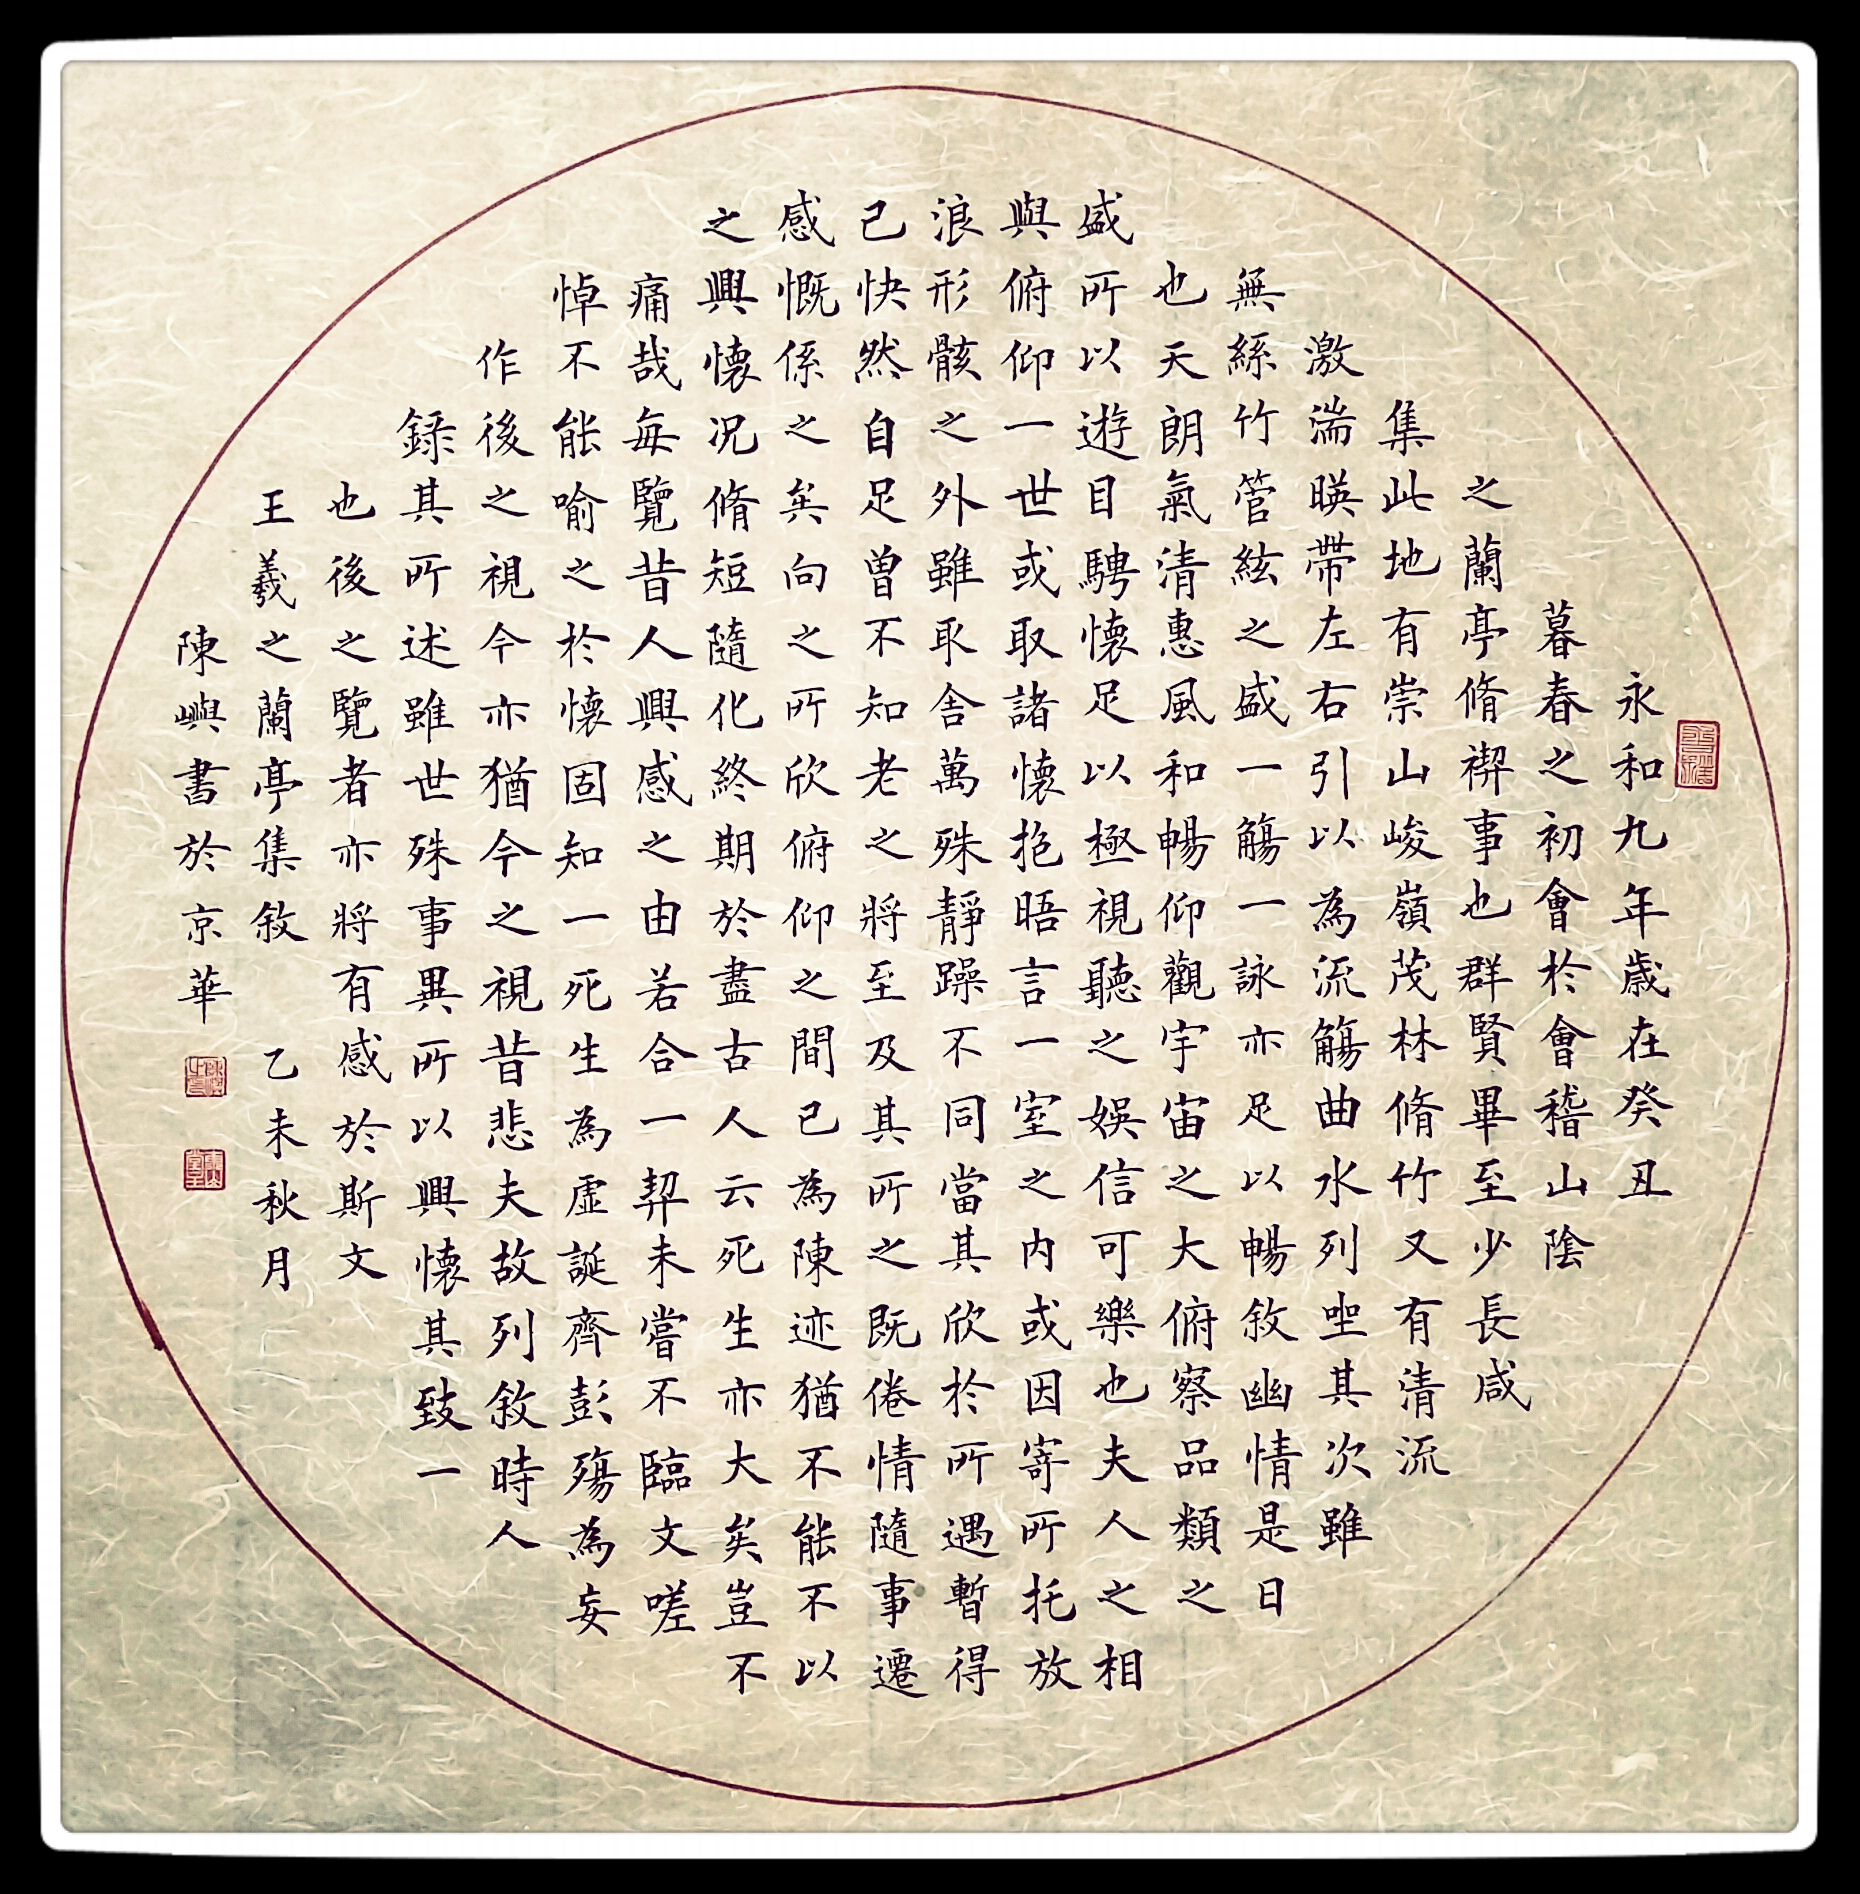 永和九年歲在癸丑
暮春之初會於會稽山陰
之蘭亭脩禊事也群賢畢至少長咸
集此地有崇山峻嶺茂林脩竹又有清流
激湍暎帶左右引以為流觴曲水列坐其次雖
無絲竹管絃之盛一觴一詠亦足以暢敘幽情是日
也天朗氣清惠風和暢仰觀宇宙之大俯察品類之
盛所以遊目騁懷足以極視聽之娛信可樂也夫人之相
與俯仰一世或取諸懷抱晤言一室之內或因寄所托放
浪形骸之外雖取舍萬殊靜躁不同當其欣於所遇暫得
己快然自足曾不知老之將至及其所之既倦情隨事遷
感慨係之矣向之所欣俯仰之間已為陳迹猶不能不以
之興懷況脩短隨化終期於盡古人云死生亦大矣豈不
痛哉每覽昔人興感之由若合一契未嘗不臨文嗟
悼不能喻之於懷固知一死生為虛誕齊彭殤為妄
作後之視今亦猶今之視昔悲夫故列敘時人
錄其所述雖世殊事異所以興懷其致一
也後之覽者亦將有感於斯文
王羲之蘭亭集敘 乙未秋月
陳嶼書於京華